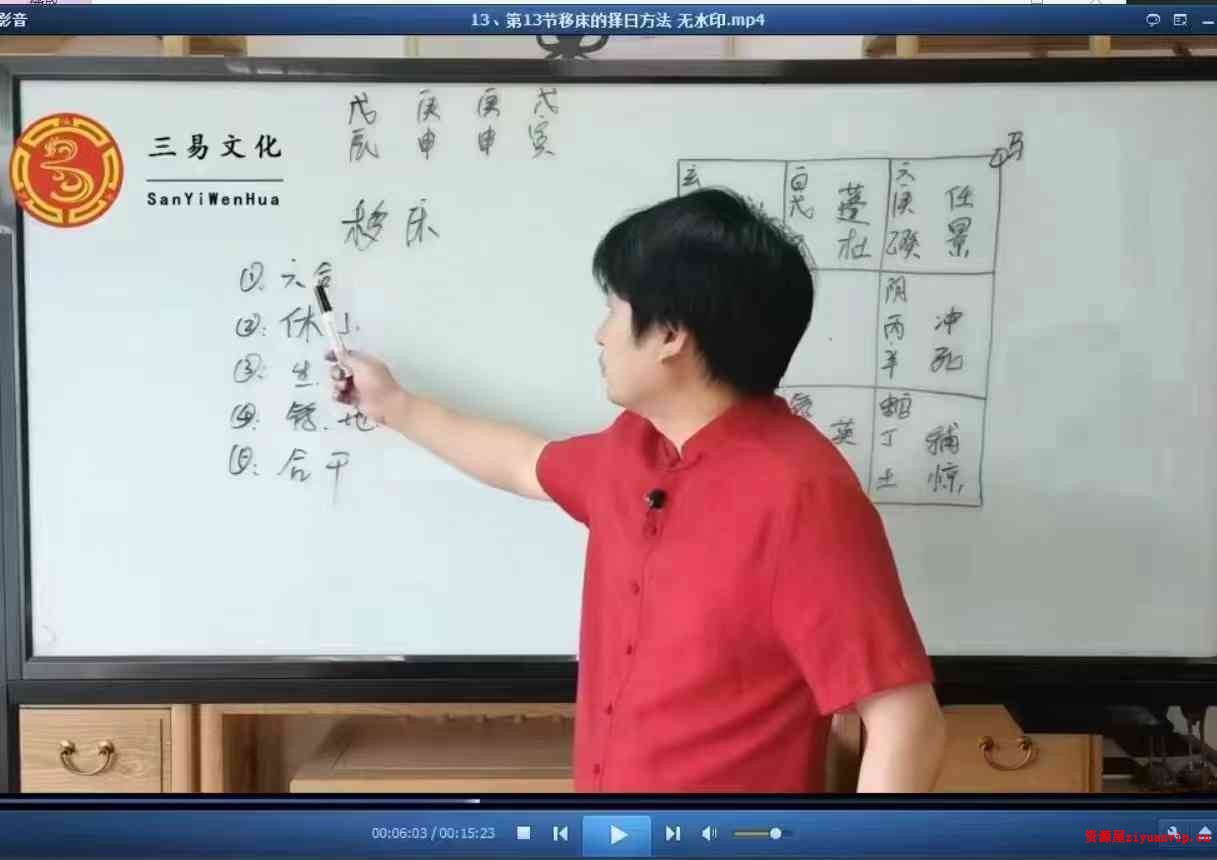 影音
13、第13节移床的择日方法 无水印.mp4
戊 庚 庚 戊
辰 申 申 寅
三易文化
SanYiWenHua
移床
①: 六合
②: 休
③: 生
④: 
⑤: 合干
玄
白
蓬
杜
六
庚
任
景
马
阴
丙
冲
死
英
丁
土
辅
惊
00:06:03 / 00:15:23
资源屋ziyuanvip.cn